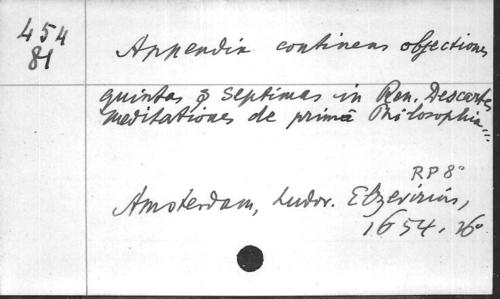 454
81
Appendix continens objectiones
quintas & septimas in Ren. Descartes
meditationes de prima Philosophia...
RP 8°
Amsterdam, Ludov. Elzevirius,
1654. 16°